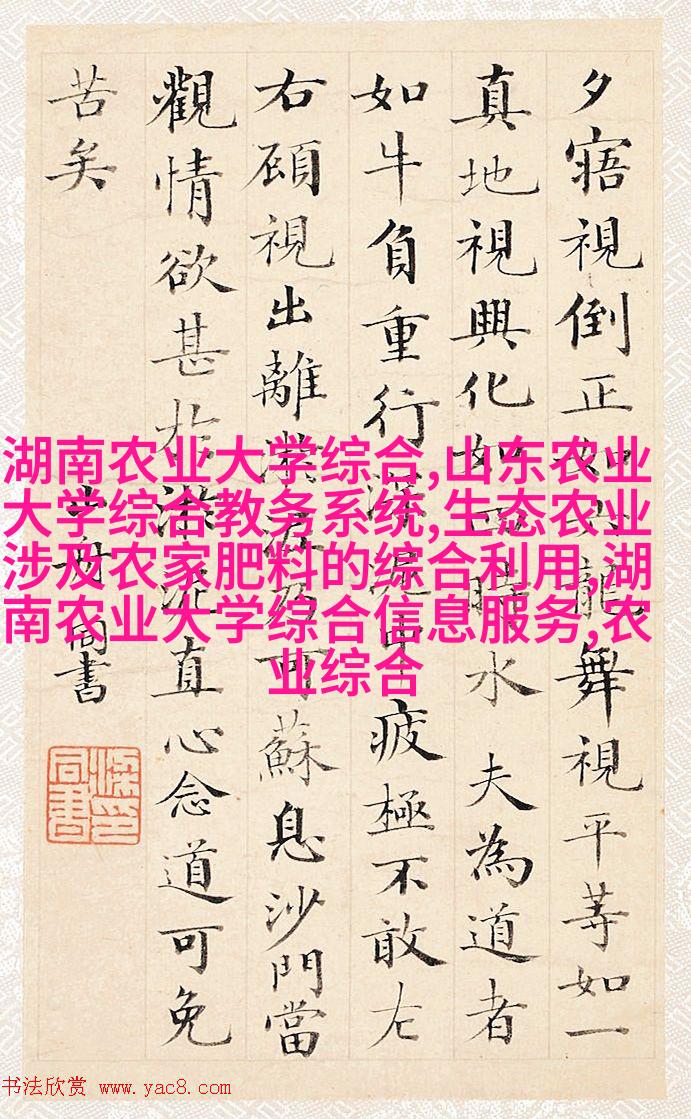 湖南农业大学综合,山东农业
大学综合教务系统,生态农业
涉及农家肥料的综合利用,湖
南农业大学综合信息服务,农
业综合
夕寤視倒正龍舞視平等如一
真地視興化如四時水夫為道者
如牛負重行深泥中疲極不敢左
右顧視出離淤泥乃可蘇息沙門當
觀情欲甚於淤泥直心念道可免
苦矣
山舟同書
梁同書印
书法欣赏 www.yac8.com